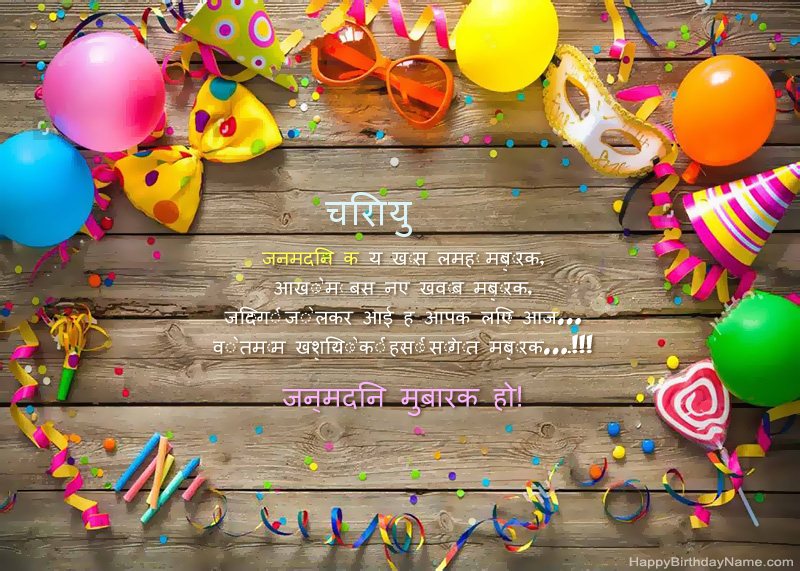 चिरायु
जन्मदिन के ये ख़ास लम्हें मुबारक,
आँखों में बसे नए ख्वाब मुबारक,
जिंदगी जो लेकर आई है आपके लिए आज...
वो तमाम खुशियों की हंसीं सौगात मुबारक...!!!
जन्मदिन मुबारक हो!
HappyBirthdayName.com